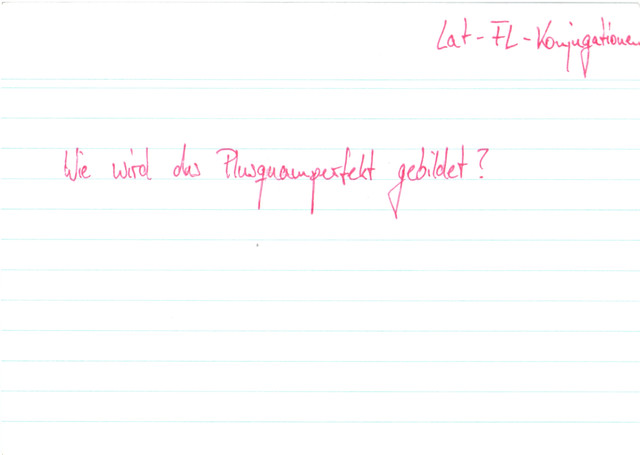 Lat-FL-Konjugationen
Wie wird das Plusquamperfekt gebildet?